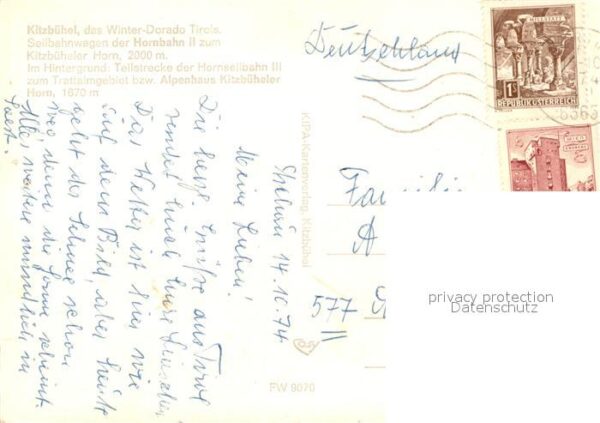 Kitzbühel, das Winter-Dorado Tirols.
Seilbahnwagen der Hornbahn II zum
Kitzbüheler Horn, 2000 m.
Im Hintergrund: Teilstrecke der Hornseilbahn III
zum Trattalmgebiet bzw. Alpenhaus Kitzbüheler
Horn, 1670 m
Deutschland
MILLSTATT
1S
REPUBLIK ÖSTERREICH
6365
WIEN
KIPA-Kartenverlag, Kitzbühel
FW 9070
14.10.74
Meine Lieben!
Die besten Grüße aus Tirol
sendet Euch Eure
Das Wetter ist hier wie
auf dem Bild, aber heute
geht der Schnee schon
weg, denn die Sonne scheint.
Alles weitere mündlich in
Familie
A
577
privacy protection
Datenschutz